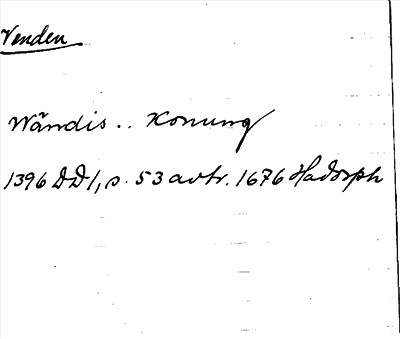 Venden
Wändis .. Konung
1396 DD1, s. 53 avtr. 1676 Hadorph